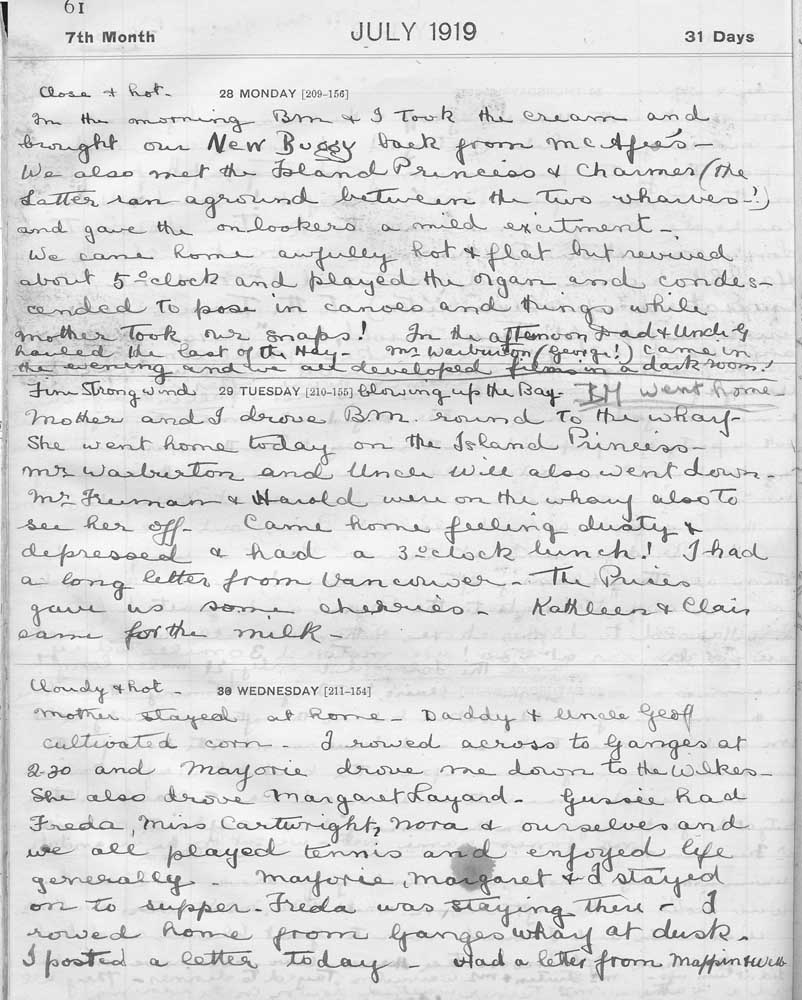 61
7th Month JULY 1919 31 Days
Close & hot - 28 MONDAY [209-156]
In the morning BM & I took the cream and
brought our New Buggy back from McAfee's -
We also met the Island Princess & Charmer (the
Latter ran aground between the two wharves -!)
and gave the onlookers a mild excitment -
We came home awfully hot & flat but revived
about 5 o'clock and played the organ and condes-
cended to pose in canoes and things while
mother took our snaps! In the afternoon Dad & Uncle G
hauled the last of the Hay - Mr Warburton (George!) came in
the evening and we all developed films in a dark room!
Fine Strong wind 29 TUESDAY [210-155] blowing up the Bay - BM went home
Mother and I drove B.M. round to the wharf -
She went home today on the Island Princess -
Mr Warburton and Uncle Will also went down -
Mr Freeman & Harold were on the wharf also to
see her off - Came home feeling dusty &
depressed & had a 3 o'clock lunch! I had
a long letter from Vancouver - The Prices
gave us some cherries - Kathleen & Clair
came for the milk -
Cloudy & hot - 30 WEDNESDAY [211-154]
Mother stayed at home - Daddy & Uncle Geoff
cultivated corn - I rowed across to Ganges at
2.30 and Marjorie drove me down to the Wilkes -
She also drove Margaret Layard - Gussie had
Freda, Miss Cartwright, Nora & ourselves and
we all played tennis and enjoyed life
generally - Marjorie, Margaret & I stayed
on to supper - Freda was staying there - I
rowed home from Ganges wharf at dusk -
I posted a letter today - Had a letter from Mappin & Webb